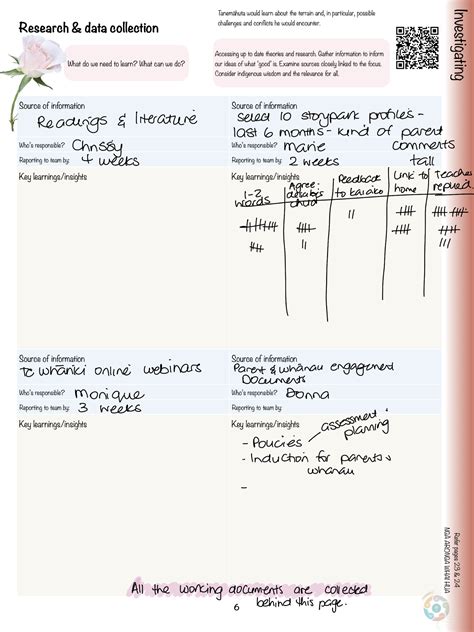 Tanemāhuta would learn about the terrain and, in particular, possible
challenges and conflicts he would encounter.
Research & data collection
Investigating
What do we need to learn? What can we do?
Accessing up to date theories and research. Gather information to inform
our ideas of what "good" is. Examine sources closely linked to the focus.
Consider indigenous wisdom and the relevance for all.
Source of information
Readings & literature
Who's responsible? Chrissy
Reporting to team by: 4 weeks
Key learnings/insights
Source of information
select 10 storypark profiles -
last 6 months - kind of parent
Who's responsible? marie comments
Reporting to team by: 2 weeks tall
Key learnings/insights
1-2 words
Agree: details child
Feedback to kaiako
Link to home
Teacher replied
Source of information
Te whāriki online webinars
Who's responsible? Monique
Reporting to team by: 3 weeks
Key learnings/insights
Source of information
Parent & whānau engagement
Documents
Who's responsible? Donna
Reporting to team by:
Key learnings/insights
- Policies assessment,
planning
- Induction for parents &
whānau
-
Refer pages 23 & 24
NGĀ ARONGA WHAI HUA
All the working documents are collected
behind this page.
6